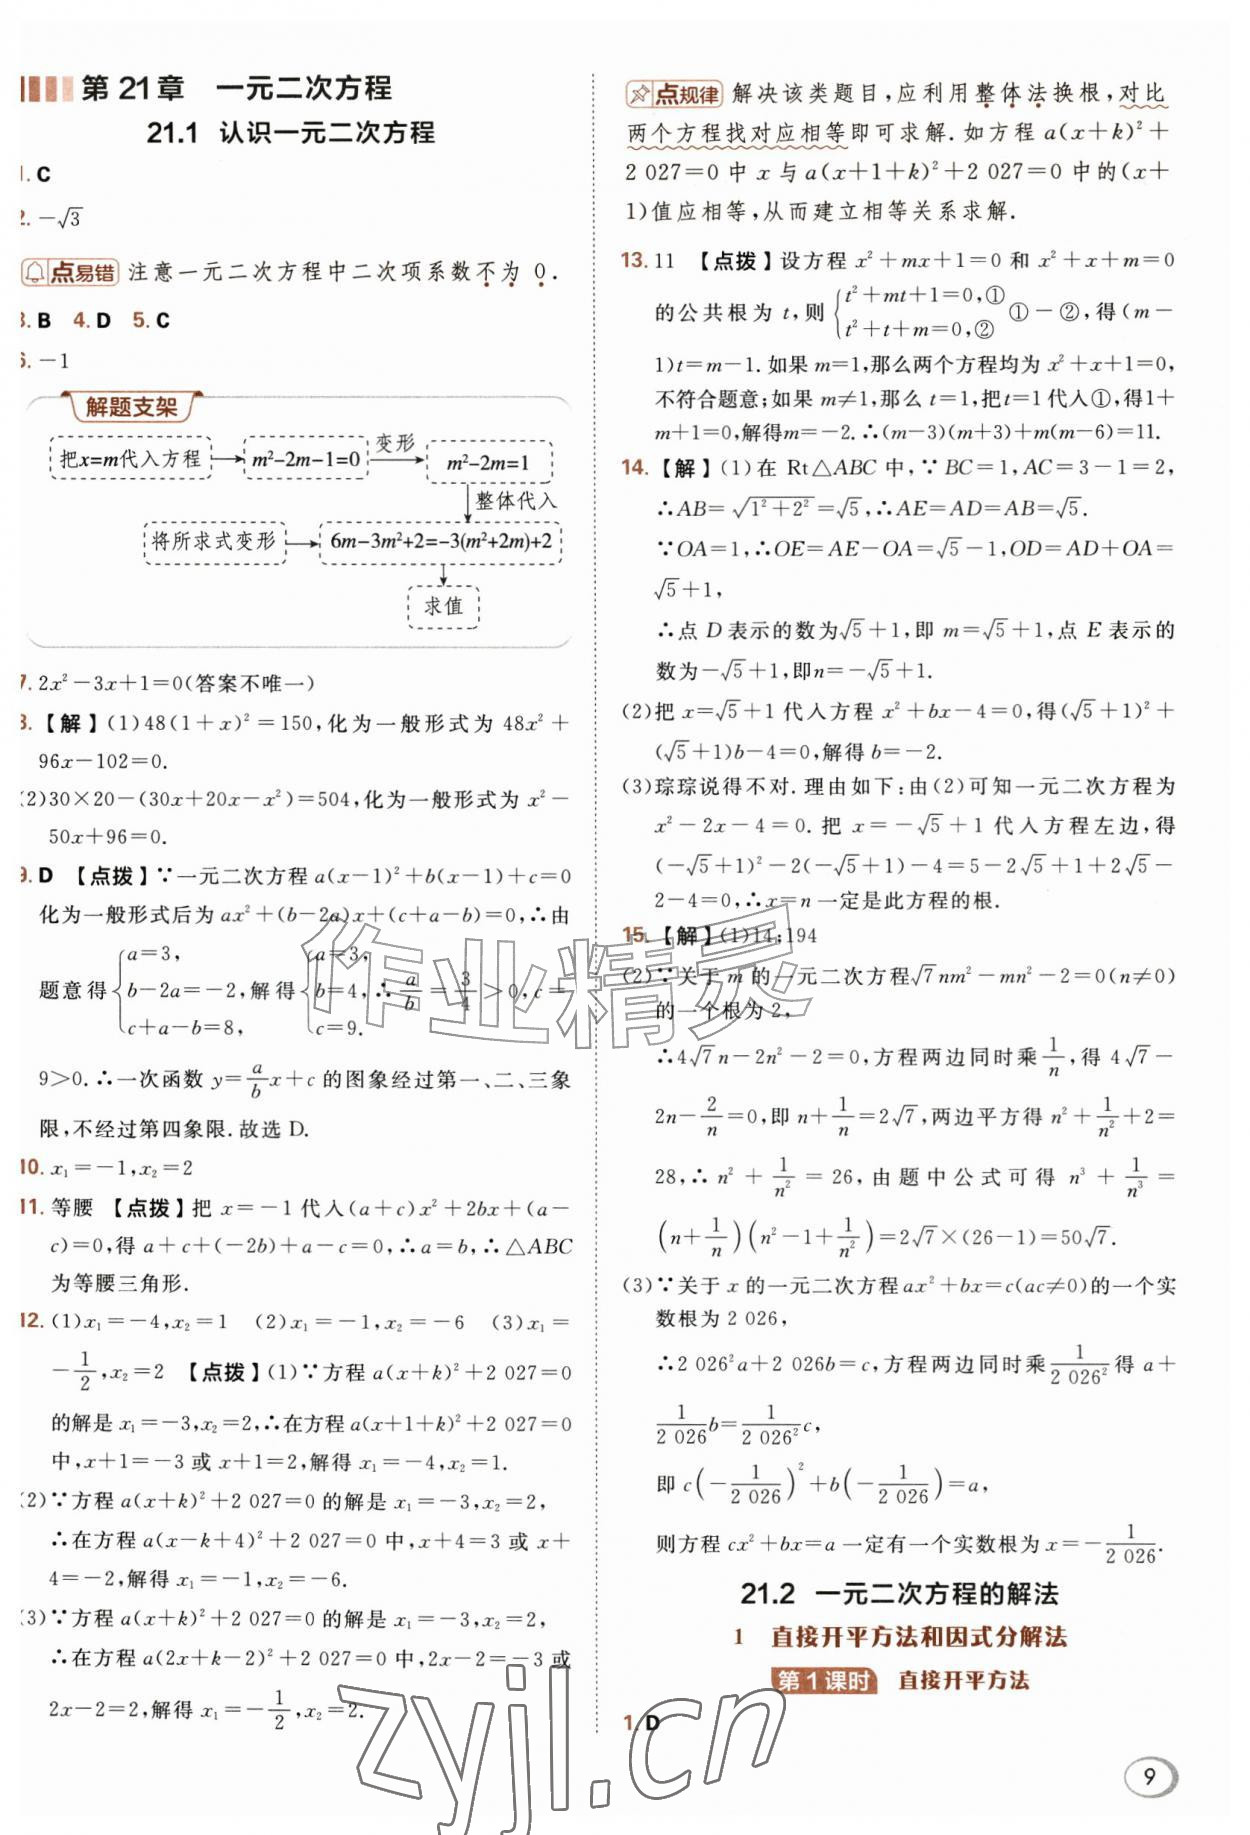 第 21 章　一元二次方程
21.1　认识一元二次方程
1. C
2. －√3
点易错 注意一元二次方程中二次项系数不为 0.
3. B　4. D　5. C
6. －1
解题支架
把x=m代入方程 → m²-2m-1=0 变形→ m²-2m=1
整体代入
将所求式变形 → 6m-3m²+2=-3(m²+2m)+2
求值
7. 2x²－3x＋1＝0(答案不唯一)
8.【解】(1)48(1＋x)²＝150,化为一般形式为 48x²＋
96x－102＝0.
(2)30×20－(30x＋20x－x²)＝504,化为一般形式为 x²－
50x＋96＝0.
9. D 【点拨】∵一元二次方程 a(x－1)²＋b(x－1)＋c＝0
化为一般形式后为 ax²＋(b－2a)x＋(c＋a－b)＝0,∴由
题意得{a＝3, b－2a＝－2, c＋a－b＝8, 解得{a＝3, b＝4, c＝9. ∴a/b＝3/4＞0,c＝
9＞0.∴一次函数 y＝a/b x＋c 的图象经过第一、二、三象
限,不经过第四象限.故选 D.
10. x₁＝－1,x₂＝2
11. 等腰 【点拨】把 x＝－1 代入(a＋c)x²＋2bx＋(a－
c)＝0,得 a＋c＋(－2b)＋a－c＝0,∴a＝b,∴△ABC
为等腰三角形.
12. (1)x₁＝－4,x₂＝1 (2)x₁＝－1,x₂＝－6 (3)x₁＝
－1/2,x₂＝2 【点拨】(1)∵方程 a(x＋k)²＋2 027＝0
的解是 x₁＝－3,x₂＝2,∴在方程 a(x＋1＋k)²＋2 027＝0
中,x＋1＝－3 或 x＋1＝2,解得 x₁＝－4,x₂＝1.
(2)∵方程 a(x＋k)²＋2 027＝0 的解是 x₁＝－3,x₂＝2,
∴在方程 a(x－k＋4)²＋2 027＝0 中,x＋4＝3 或 x＋
4＝－2,解得 x₁＝－1,x₂＝－6.
(3)∵方程 a(x＋k)²＋2 027＝0 的解是 x₁＝－3,x₂＝2,
∴在方程 a(2x＋k－2)²＋2 027＝0 中,2x－2＝－3 或
2x－2＝2,解得 x₁＝－1/2,x₂＝2.
点规律 解决该类题目,应利用整体法换根,对比
两个方程找对应相等即可求解.如方程 a(x＋k)²＋
2 027＝0 中 x 与 a(x＋1＋k)²＋2 027＝0 中的(x＋
1)值应相等,从而建立相等关系求解.
13. 11 【点拨】设方程 x²＋mx＋1＝0 和 x²＋x＋m＝0
的公共根为 t,则{t²＋mt＋1＝0,① t²＋t＋m＝0,② ①－②,得(m－
1)t＝m－1.如果 m＝1,那么两个方程均为 x²＋x＋1＝0,
不符合题意;如果 m≠1,那么 t＝1,把t＝1 代入①,得1＋
m＋1＝0,解得m＝－2.∴(m－3)(m＋3)＋m(m－6)＝11.
14.【解】(1)在 Rt△ABC 中,∵BC＝1,AC＝3－1＝2,
∴AB＝√(1²＋2²)＝√5,∴AE＝AD＝AB＝√5.
∵OA＝1,∴OE＝AE－OA＝√5－1,OD＝AD＋OA＝
√5＋1,
∴点 D 表示的数为√5＋1,即 m＝√5＋1,点 E 表示的
数为－√5＋1,即n＝－√5＋1.
(2)把 x＝√5＋1 代入方程 x²＋bx－4＝0,得(√5＋1)²＋
(√5＋1)b－4＝0,解得 b＝－2.
(3)琮琮说得不对.理由如下:由(2)可知一元二次方程为
x²－2x－4＝0.把 x＝－√5＋1 代入方程左边,得
(－√5＋1)²－2(－√5＋1)－4＝5－2√5＋1＋2√5－
2－4＝0,∴x＝n 一定是此方程的根.
15.【解】(1)14;194
(2)∵关于 m 的一元二次方程√7nm²－mn²－2＝0(n≠0)
的一个根为 2,
∴4√7n－2n²－2＝0,方程两边同时乘1/n,得 4√7－
2n－2/n＝0,即 n＋1/n＝2√7,两边平方得 n²＋1/n²＋2＝
28,∴n²＋1/n²＝26,由题中公式可得 n³＋1/n³＝
(n＋1/n)(n²－1＋1/n²)＝2√7×(26－1)＝50√7.
(3)∵关于 x 的一元二次方程 ax²＋bx＝c(ac≠0)的一个实
数根为 2 026,
∴2 026²a＋2 026b＝c,方程两边同时乘1/2 026²得 a＋
1/2 026 b＝1/2 026² c,
即 c(－1/2 026)²＋b(－1/2 026)＝a,
则方程 cx²＋bx＝a 一定有一个实数根为 x＝－1/2 026.
21.2　一元二次方程的解法
1　直接开平方法和因式分解法
第 1 课时　直接开平方法
1. D
9
作业精灵
zyjl.cn